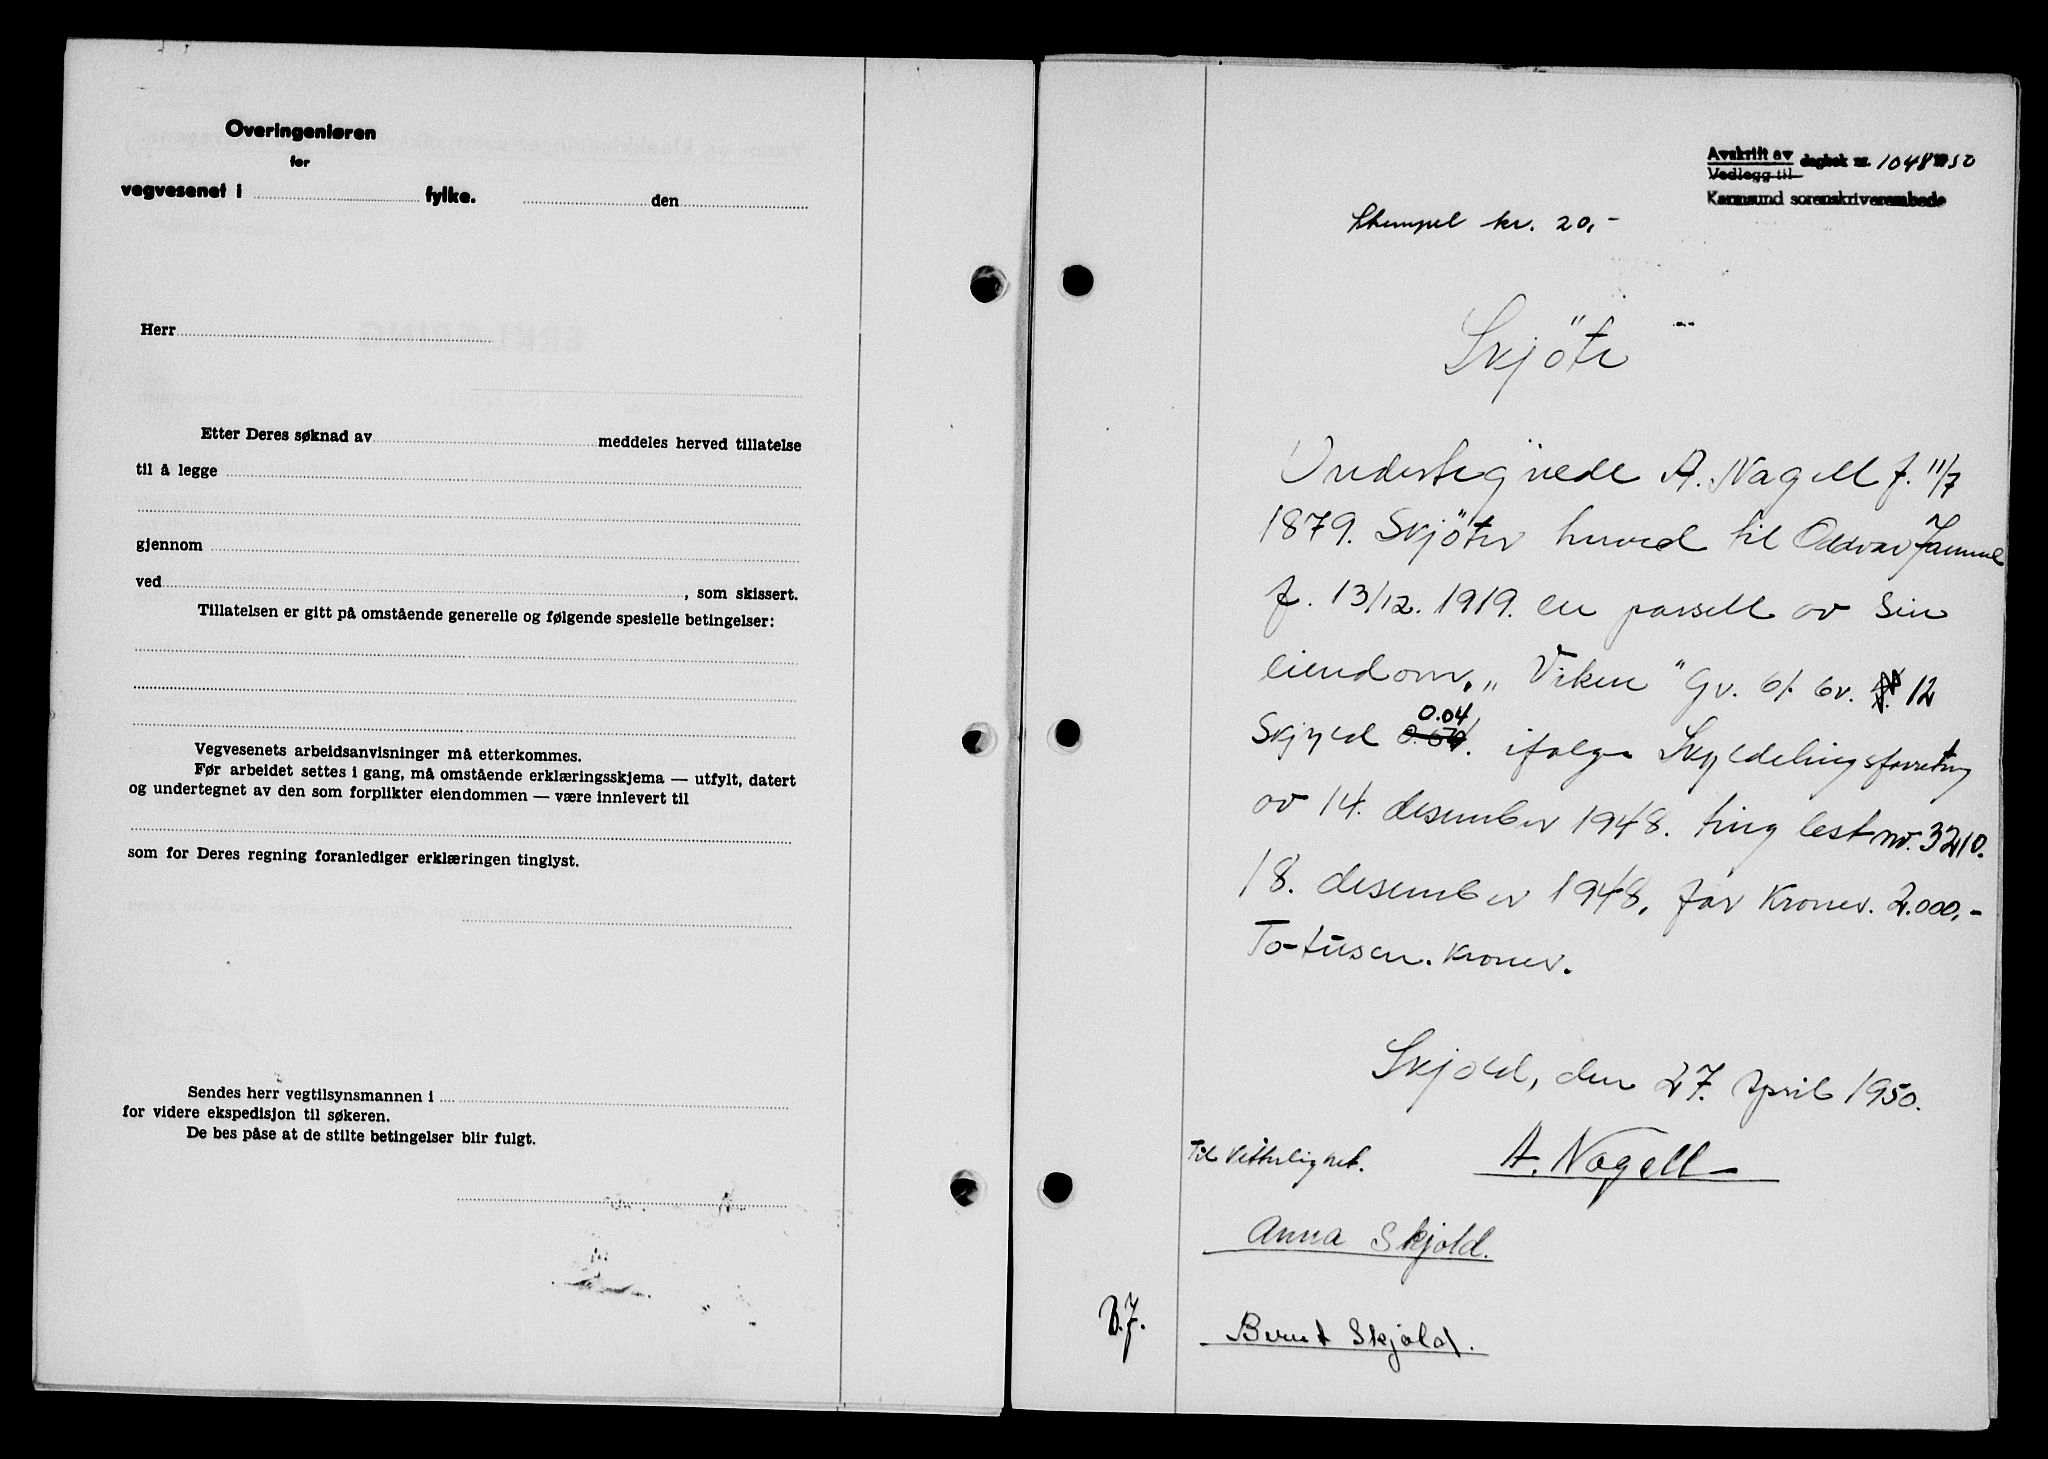 Overingeniøren
for
vegvesenet i fylke. den
Herr
Etter Deres søknad av meddeles herved tillatelse
til å legge
gjennom
ved , som skissert.
Tillatelsen er gitt på omstående generelle og følgende spesielle betingelser:
Vegvesenets arbeidsanvisninger må etterkommes.
Før arbeidet settes i gang, må omstående erklæringsskjema — utfylt, datert
og undertegnet av den som forplikter eiendommen — være innlevert til
som for Deres regning foranlediger erklæringen tinglyst.
Sendes herr vegtilsynsmannen i
for videre ekspedisjon til søkeren.
De bes påse at de stilte betingelser blir fulgt.
Avskrift av dagbok nr. 1048 1950
Vedlegg til
Karmsund sorenskriverembede
Stempel kr. 20,-
Skjöte
Undertegnede A. Nagell f. 11/7
1879. Skjöter herved til Oddvar
f. 13/12. 1919. en parsell av sin
eiendom, „ Viken " Gv. 61. bv. 12
Skjyld 0.04 ifølge Skyldelingsforretning
av 14. desember 1948. ting lest nr. 3210.
18. desember 1948, for Kroner. 2.000,-
To-tusen. Kroner.
Skjold, den 27. April 1950.
Til Vitterlighet. A. Nagell
Anna Skjold.
B.F.
Bernt Skjold.